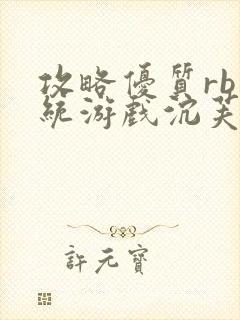 攻略優質rb
統游戲沉芙
許元寶